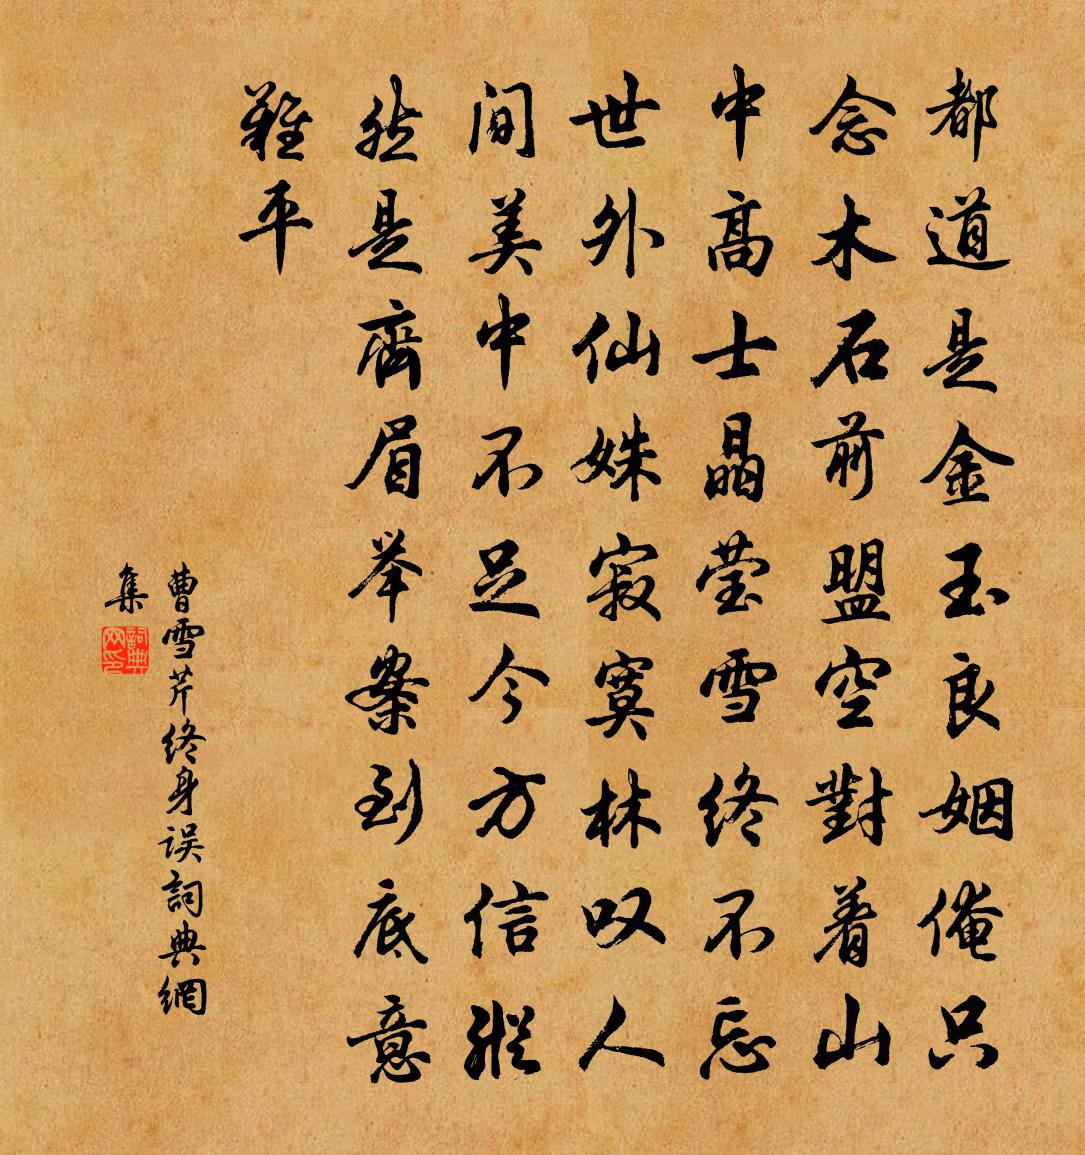 都道是金玉良姻俺只
念木石前盟空對着山
中高士晶莹雪终不忘
世外仙姝寂寞林叹人
间美中不足今方信縱
然是齊眉举案到底意
難平
曹雪芹终身误詞典網
集
詞典网印